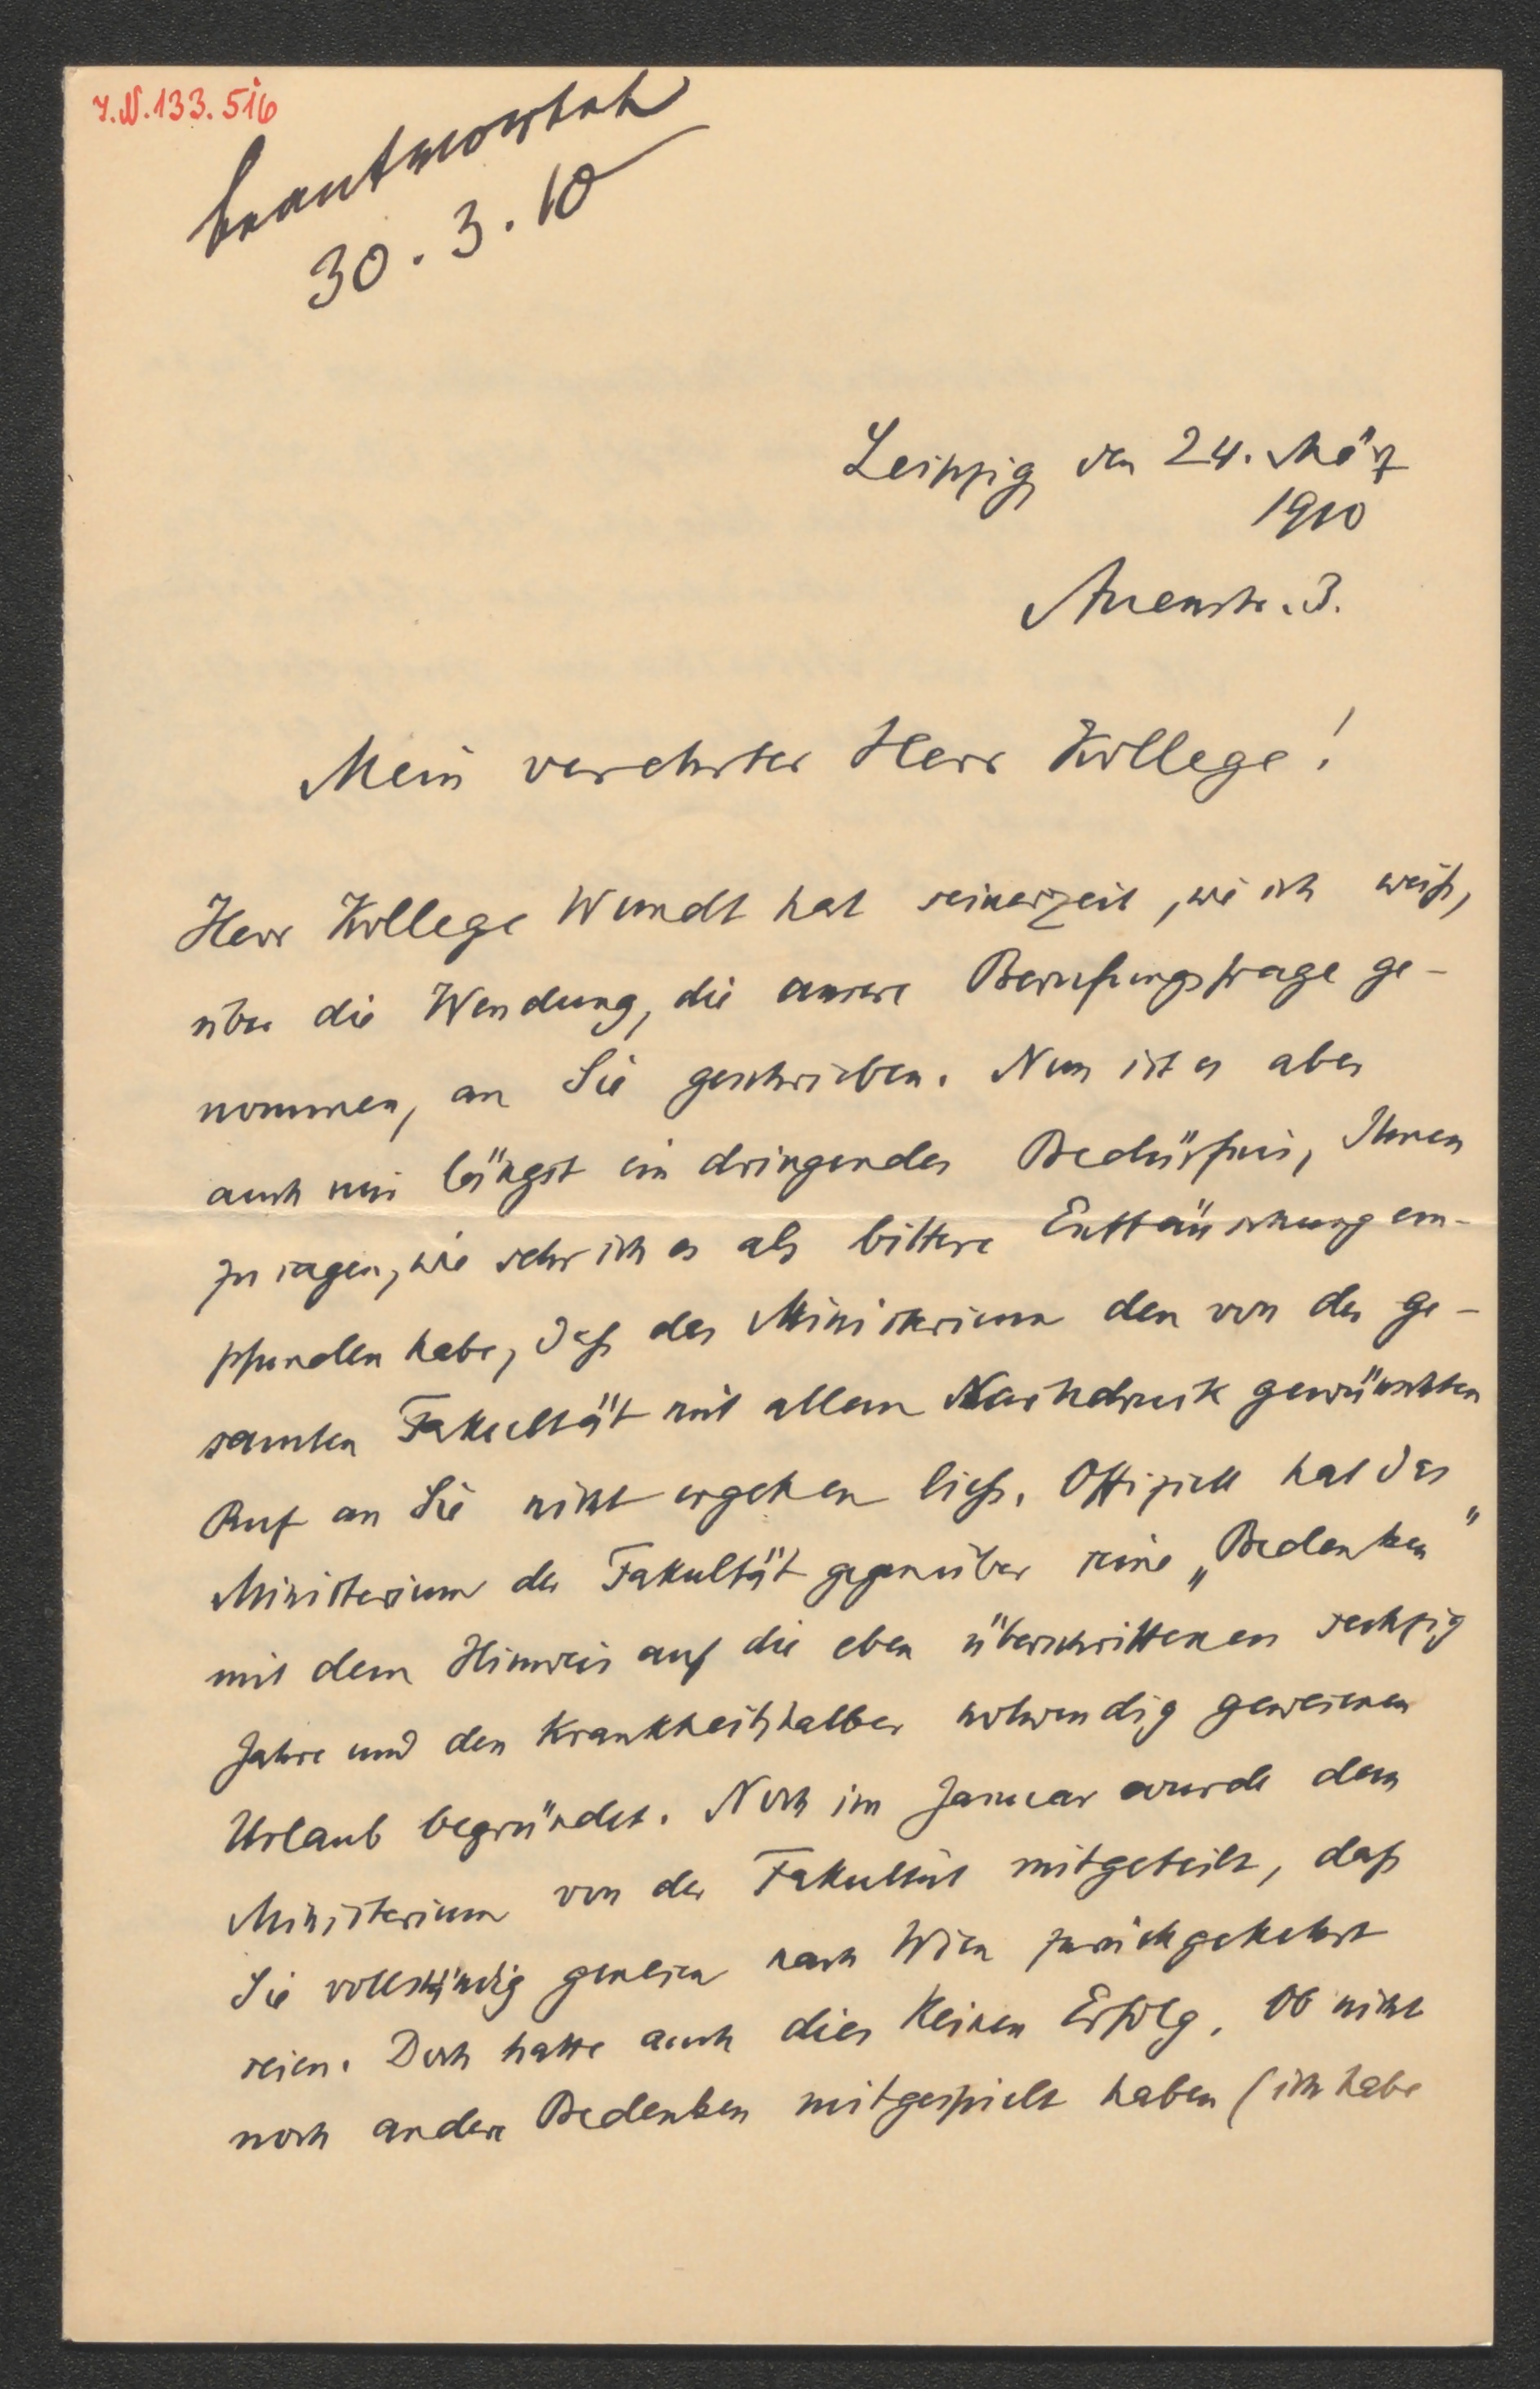 I.N.133.516
beantwortet
30.3.10
Leipzig den 24. März
1910
Auenstr. 3.
Mein verehrter Herr Kollege!
Herr Kollege Wundt hat seinerzeit, wie ich weiß,
über die Wendung, die unsere Berufungsfrage ge-
nommen, an Sie geschrieben. Nun ist es aber
auch mir längst ein dringendes Bedürfnis, Ihnen
zu sagen, wie sehr ich es als bittere Enttäuschung em-
pfunden habe, daß das Ministerium den von der ge-
samten Fakultät mit allem Nachdruck gewünschten
Ruf an Sie nicht ergehen ließ. Offiziell hat das
Ministerium der Fakultät gegenüber seine „Bedenken"
mit dem Hinweis auf die eben überschrittenen sechzig
Jahre und den krankheitshalber notwendig gewesenen
Urlaub begründet. Noch im Januar wurde dem
Ministerium von der Fakultät mitgeteilt, daß
Sie vollständig genesen nach Wien zurückgekehrt
seien. Doch hatte auch dies keinen Erfolg. Ob nicht
noch andere Bedenken mitgespielt haben (ich habe